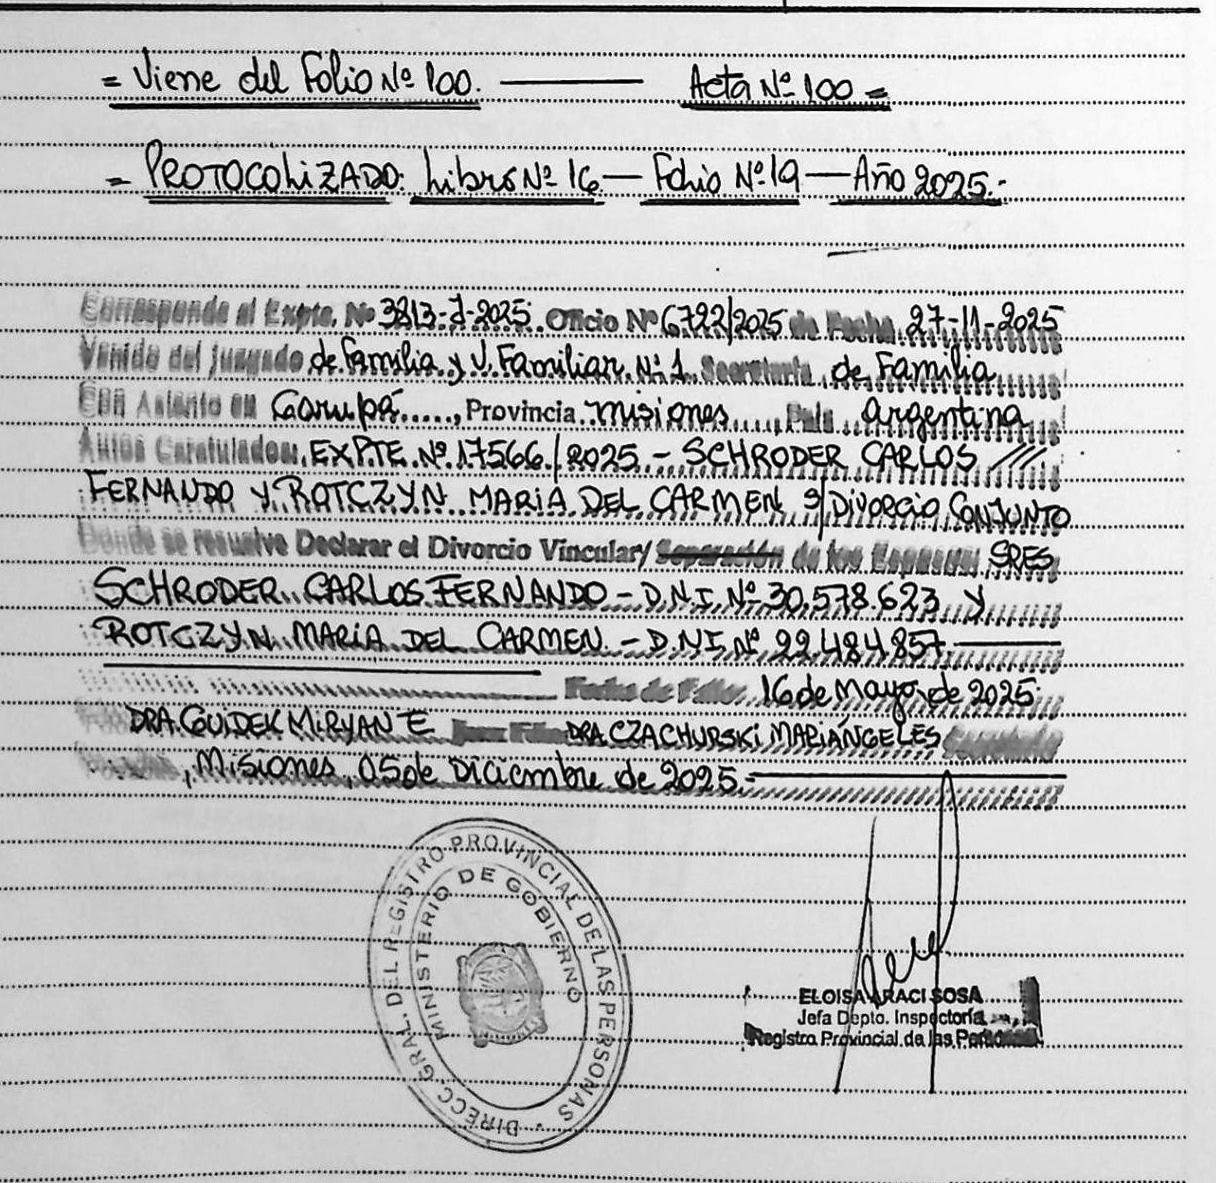 = Viene del Folio Nº 100. ——— Acta Nº 100 =
= PROTOCOLIZADO: Libro Nº 16 — Folio Nº 19 — Año 2025.-
Corresponde al Expte. Nº 3813-J-2025. Oficio Nº 6722/2025 de Fecha 27-11-2025
Venido del juzgado de Familia y V. Familiar Nº 1 Secretaría de Familia
Con Asiento en Garupá....., Provincia misiones ...., País argentina
Autos Caratulados: EXPTE. Nº 17566/2025 - SCHRODER CARLOS ////
FERNANDO Y ROTCZYN MARIA DEL CARMEN S/ Divorcio CONJUNTO
Donde se resuelve Declarar el Divorcio Vincular/ Separación de los Esposos: SRES
SCHRODER CARLOS FERNANDO - D.N.I. Nº 30.578.623 Y
ROTCZYN MARIA DEL CARMEN. - D.N.I Nº 22.484.857
Fecha de Fallo: 16 de Mayo de 2025.
DRA. GUIDEK MIRYAN E Juez DRA CZACHURSKI MARIÁNGELES Secretaria
, Misiones, 05 de Diciembre de 2025.-
DIRECC. GRAL. DEL REGISTRO PROVINCIAL DE LAS PERSONAS
MINISTERIO DE GOBIERNO
ELOISA ARACI SOSA
Jefa Depto. Inspectoría
Registro Provincial de las Personas